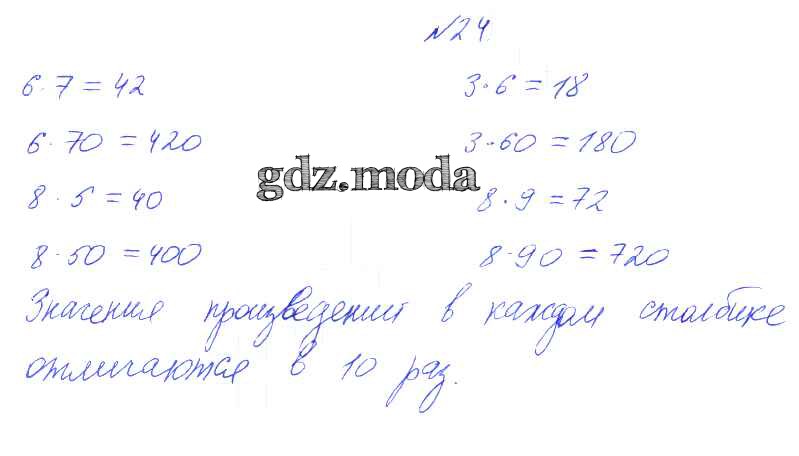 №24.
6·7=42 3·6=18
6·70=420 3·60=180
gdz.moda
8·5=40 8·9=72
8·50=400 8·90=720
Значения произведений в каждом столбике
отличаются в 10 раз.